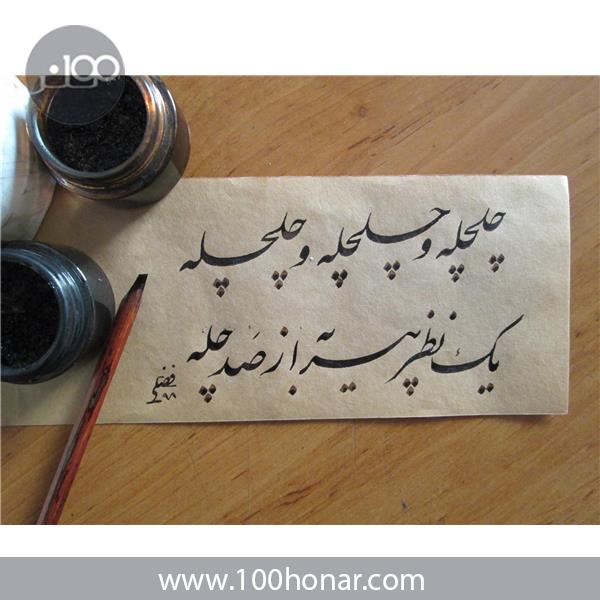 100هنر
چلچله و چلچله و چلچله
یک نظر پیر به از صد چله
۸۸
www.100honar.com